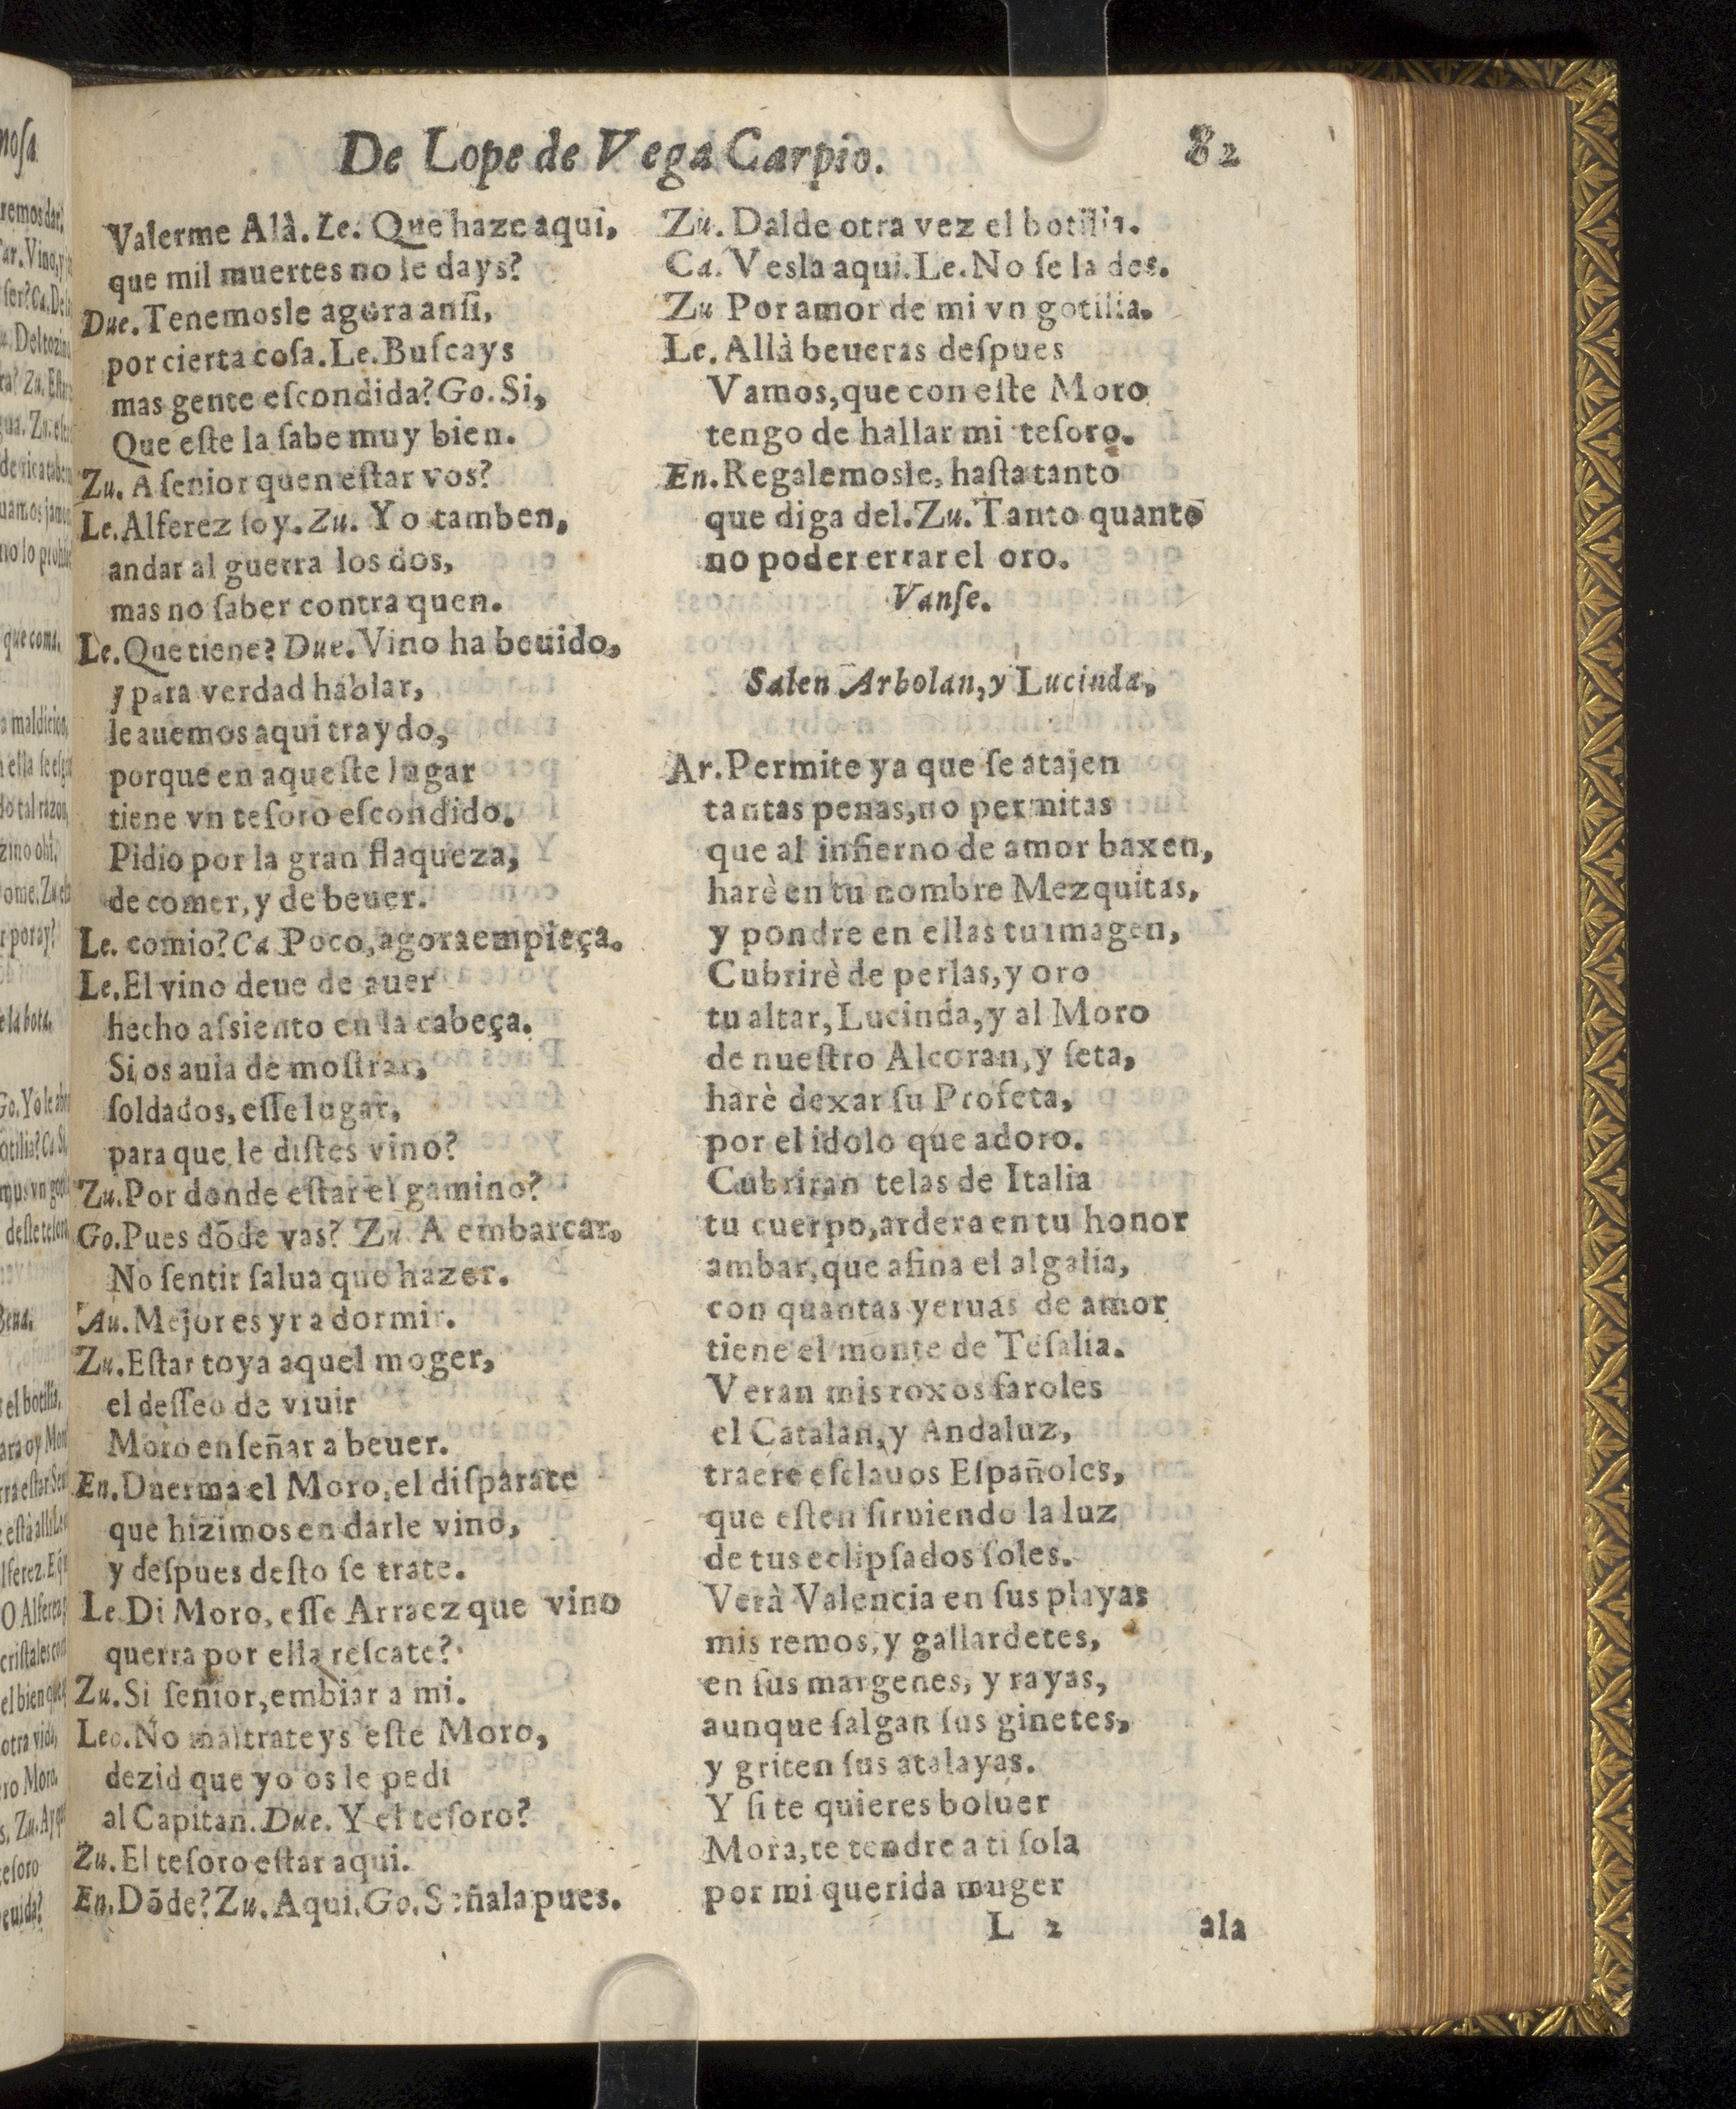 De Lope de Vega Carpio. 82
Valerme Alà. Le. Que haze aqui,
que mil muertes no le days?
Due. Tenemosle agora ansi,
por cierta coſa. Le. Buſcays
mas gente eſcondida? Go. Si,
Que eſte la ſabe muy bien.
Zu. A ſenior quen eſtar vos?
Le. Alferez ſoy. Zu. Yo tamben,
andar al guerra los dos,
mas no ſaber contra quen.
Le. Que tiene? Due. Vino ha beuido,
y para verdad hablar,
le auemos aqui traydo,
porque en aqueſte lugar
tiene vn teſoro eſcondido.
Pidio por la gran flaqueza,
de comer, y de beuer.
Le. comio? Ca Poco, agora empieça.
Le. El vino deue de auer
hecho aſsiento en la cabeça.
Si os auia de moſtrar,
ſoldados, eſſe lugar,
para que le diſtes vino?
Zu. Por donde eſtar el gamino?
Go. Pues dōde vas? Zu A embarcar.
No ſentir ſalua que hazer.
Au. Mejor es yr a dormir.
Zu. Eſtar toya aquel moger,
el deſſeo de viuir
Moro enſeñar a beuer.
En. Duerma el Moro, el diſparate
que hizimos en darle vino,
y deſpues deſto ſe trate.
Le. Di Moro, eſſe Arraez que vino
querra por ella reſcate?
Zu. Si ſenior, embiar a mi.
Leo. No maltrateys eſte Moro,
dezid que yo os le pedi
al Capitan. Due. Y el teſoro?
Zu. El teſoro eſtar aqui.
En. Dōde? Zu. Aqui. Go. Señala pues.
Zu. Dalde otra vez el botilia.
Ca. Vesla aqui. Le. No ſe la des.
Zu Por amor de mi vn gotilia.
Le. Allà beueras deſpues
Vamos, que con eſte Moro
tengo de hallar mi teſoro.
En. Regalemosle, haſta tanto
que diga del. Zu. Tanto quanto
no poder errar el oro.
Vanſe.
Salen Arbolan, y Lucinda,
Ar. Permite ya que ſe atajen
tantas penas, no permitas
que al infierno de amor baxen,
harè en tu nombre Mezquitas,
y pondre en ellas tu imagen,
Cubrirè de perlas, y oro
tu altar, Lucinda, y al Moro
de nueſtro Alcoran, y ſeta,
harè dexar ſu Profeta,
por el idolo que adoro.
Cubriran telas de Italia
tu cuerpo, ardera en tu honor
ambar, que afina el algalia,
con quantas yeruas de amor
tiene el monte de Teſalia.
Veran mis roxos faroles
el Catalan, y Andaluz,
traere eſclauos Eſpañoles,
que eſten ſiruiendo la luz
de tus eclipſados ſoles.
Verà Valencia en ſus playas
mis remos, y gallardetes,
en ſus margenes, y rayas,
aunque ſalgan ſus ginetes,
y griten ſus atalayas.
Y ſi te quieres boluer
Mora, te tendre a ti ſola
por mi querida muger
L 2 ala